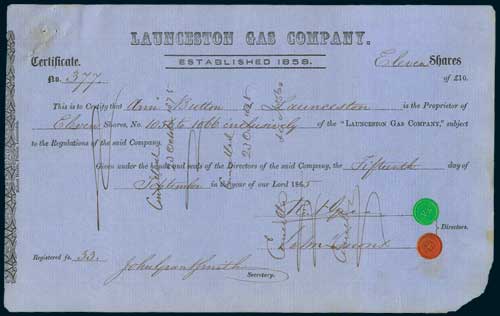 LAUNCESTON GAS COMPANY.
ESTABLISHED 1858.
Certificate. Eleven Shares
No. 377 of £10.
This is to Certify that Ann Button of Launceston is the Proprietor
of Eleven Shares, No. 1056 to 1066 inclusively of the "LAUNCESTON GAS COMPANY," subject
to the Regulations of the said Company.
Given under the hands and seals of the Directors of the said Company, the Fifteenth day of
September in the year of our Lord 1865
Directors.
Registered fo. 33.
John Grant Smith
Secretary.
Cancelled
Cancelled
23 Oct
Cancelled
Cancelled